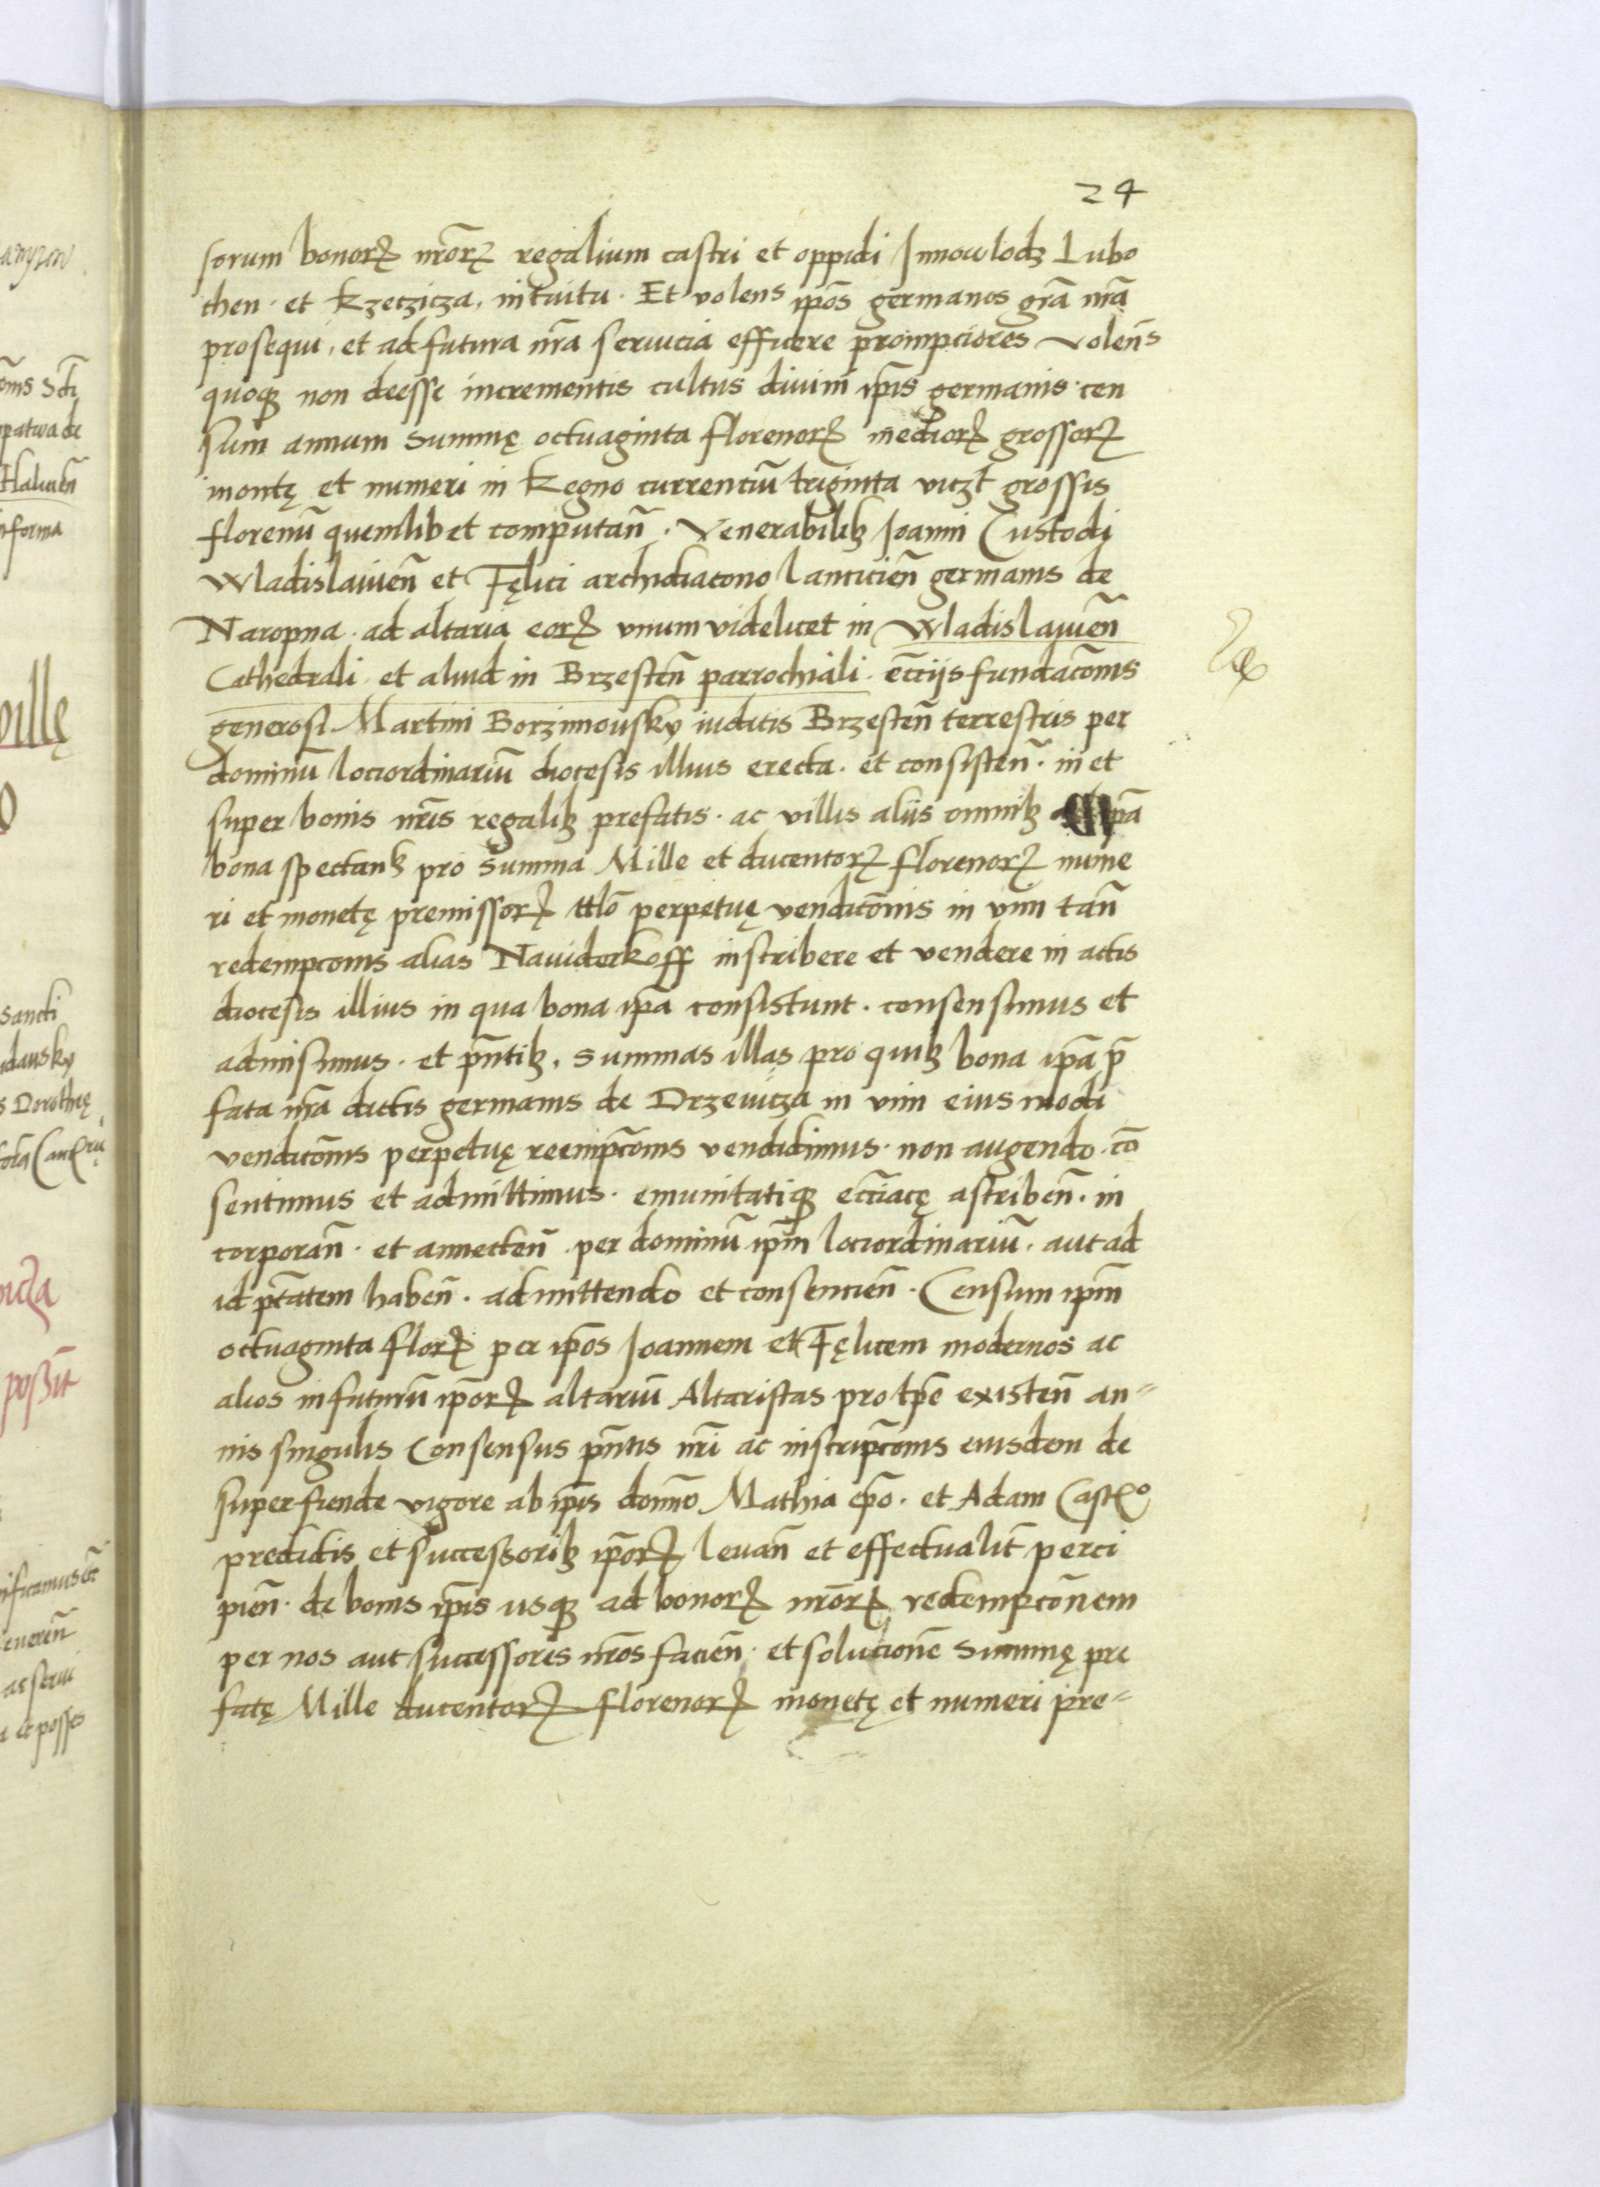 24
sorum bonorꝝ nr̃orꝝ regalium castri et oppidi Innowlodz Lubo
then · et Rzeczicza, intuitu · Et volens ip̃os germanos gr̃a nr̃a
prosequi, et ad futura nr̃a seruicia efficere prompciores volens
quoqȝ non deesse incrementis cultus diuini ip̃is germanis · cen
sum annum summę octuaginta florenorꝝ mediorꝝ grossorꝝ
monetę et numeri in Regno currenciũ triginta viczt grossis
florenũ quemlibet computañ · Venerabilibȝ Joanni Custodi
Wladislauieñ et Fęlici archidiacono Lanciciẽn germanis de
Naropna · ad altaria eorꝝ vnum videlicet in Wladislauieñ
Cathedrali · et aliud in Brzesteñ parrochiali · ecc̃ijs fundac̃onis
generosi Martini Borzimowsky iudicis Brzesteñ terrestris per
dominũ lociordinariũ diocesis illius erecta · et consisteñ · in et
super bonis nr̃is regalibȝ prefatis · ac villis aliis omnibȝ ad ip̃a
bona spectanbȝ pro summa Mille et ducentorꝝ florenorꝝ nume
ri et monetę premissorꝝ ttlõ perpetuę vendic̃onis in vim tañ
redempc̃onis alias Nawiderkoff inscribere et vendere in actis
diocesis illius in qua bona ip̃a consistunt · consensimus et
admisimus · et p̃ntibȝ, summas illas pro quibȝ bona ip̃a p̃
fata nr̃a dictis germanis de Drzewicza in vim eiusmodi
vendic̃onis perpetuę reempc̃onis vendidimus · non augendo · cõ
sentimus et admittimus · emunitatiqȝ ecc̃iacę ascribeñ · in
corporañ · et annecteñ · per dominũ ip̃m lociordinariũ · aut ad
id p̃tatem habeñ · admittendo et consencieñ · Censum ip̃m
octuaginta florꝝ per ip̃os Joannem et Fęlicem modernos ac
alios in futurũ ip̃orꝝ altariũ Altaristas pro tp̃e existeñ an-
nis singulis Consensus p̃ntis nr̃i ac inscripc̃onis eiusdem de
super fiende vigore ab ip̃is dom̃o Mathia ep̃o · et Adam Castꝝo
predictis et successoribȝ ip̃orꝝ leuañ et effectualit̃ perci
pieñ · de bonis ip̃is usqȝ ad bonorꝝ nr̃orꝝ redempc̃onem
per nos aut successores nr̃os facieñ · et solucionẽ summę pre
fatę Mille ducentorꝝ florenorꝝ monetę et numeri pre-